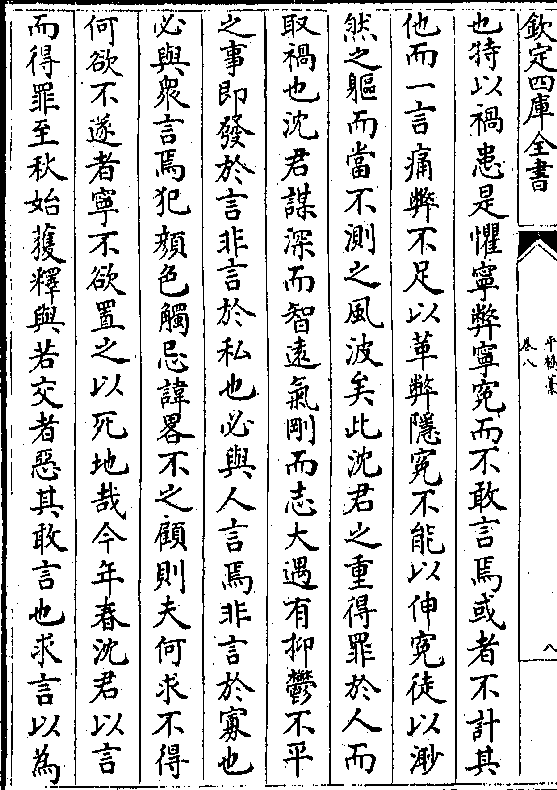 欽定四庫全書
卷八
八
也特以禍患是懼寧弊寧寃而不敢言焉或者不計其
他而一言痛弊不足以革弊隱寃不能以伸寃徒以渺
然之軀而當不測之風波矣此沈君之重得罪於人而
取禍也沈君謀深而智遠氣剛而志大遇有抑鬱不平
之事即發於言非言於私也必與人言焉非言於寡也
必與衆言焉犯顔色觸忌諱畧不之顧則夫何求不得
何欲不遂者寧不欲置之以死地哉今年春沈君以言
而得罪至秋始蒦釋與若交者惡其敢言也求言以為